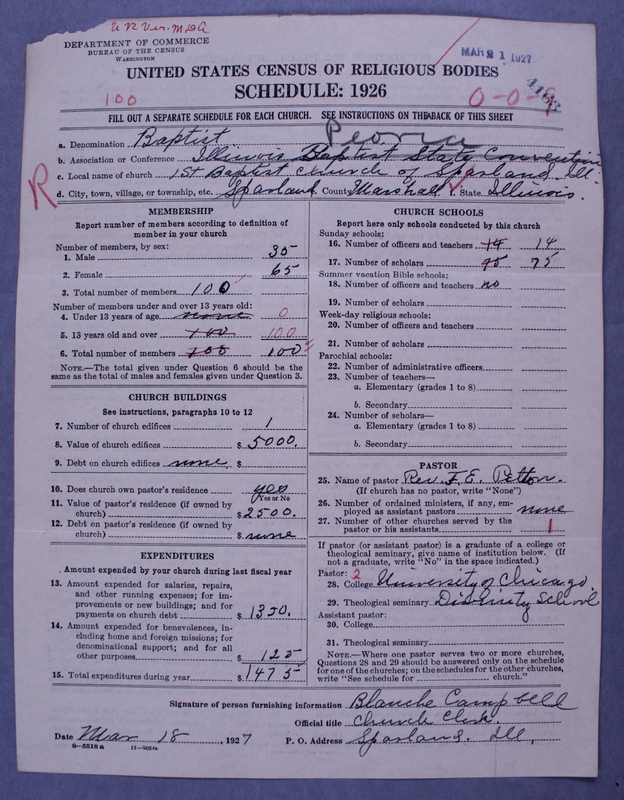 DEPARTMENT OF COMMERCE
BUREAU OF THE CENSUS
WASHINGTON
MAR 21 1927
UNITED STATES CENSUS OF RELIGIOUS BODIES
SCHEDULE: 1926
100
0-0-9
FILL OUT A SEPARATE SCHEDULE FOR EACH CHURCH. SEE INSTRUCTIONS ON THE BACK OF THIS SHEET
Peoria
a. Denomination Baptist
b. Association or Conference Illinois Baptist State Convention
c. Local name of church 1st Baptist Church of Sparland, Ill.
R
d. City, town, village, or township, etc. Sparland. County Marshall f. State Illinois.
MEMBERSHIP
Report number of members according to definition of member in your church
Number of members, by sex:
1. Male 35
2. Female 65
3. Total number of members 100
Number of members under and over 13 years old:
4. Under 13 years of age none 0
5. 13 years old and over 100 100
6. Total number of members 100 100
NOTE.—The total given under Question 6 should be
same as the total of males and females given under Question 3.
CHURCH BUILDINGS
See instructions, paragraphs 10 to 12
7. Number of church edifices 1
8. Value of church edifices $ 5000.
9. Debt on church edifices none. $
10. Does church own pastor's residence yes
Yes or No
11. Value of pastor's residence (if owned by
church) $ 2500.
12. Debt on pastor's residence (if owned by
church) $ none
EXPENDITURES
Amount expended by your church during last fiscal year
13. Amount expended for salaries, repairs,
and other running expenses; for im-
provements or new buildings; and for
payments on church debt $ 1350.
14. Amount expended for benevolences, in-
cluding home and foreign missions; for
denominational support; and for all
other purposes $ 125
15. Total expenditures during year $ 1475
CHURCH SCHOOLS
Report here only schools conducted by this church
Sunday schools:
16. Number of officers and teachers 14 14
17. Number of scholars 75 75
Summer vacation Bible schools:
18. Number of officers and teachers no
19. Number of scholars
Week-day religious schools:
20. Number of officers and teachers
21. Number of scholars
Parochial schools:
22. Number of administrative officers
23. Number of teachers—
a. Elementary (grades 1 to 8)
b. Secondary
24. Number of scholars—
a. Elementary (grades 1 to 8)
b. Secondary
PASTOR
25. Name of pastor Rev. F. E.
(If church has no pastor, write "None")
26. Number of ordained ministers, if any, em-
ployed as assistant pastors none
27. Number of other churches served by the
pastor or his assistants 1
If pastor (or assistant pastor) is a graduate of a college or
theological seminary, give name of institution below. (If
not a graduate, write "No" in the space indicated.)
Pastor: 2
28. College University of Chicago
29. Theological seminary Divinity School
Assistant pastor:
30. College
31. Theological seminary
NOTE.—Where one pastor serves two or more churches,
Questions 28 and 29 should be answered only on the schedule
for one of the churches; on the schedules for the other churches,
write "See schedule for church."
Signature of person furnishing information Blanche Campbell
Official title Church Clerk.
Date Mar 18, 1927 P. O. Address Sparland, Ill.,
9-5518 a 11-9054a